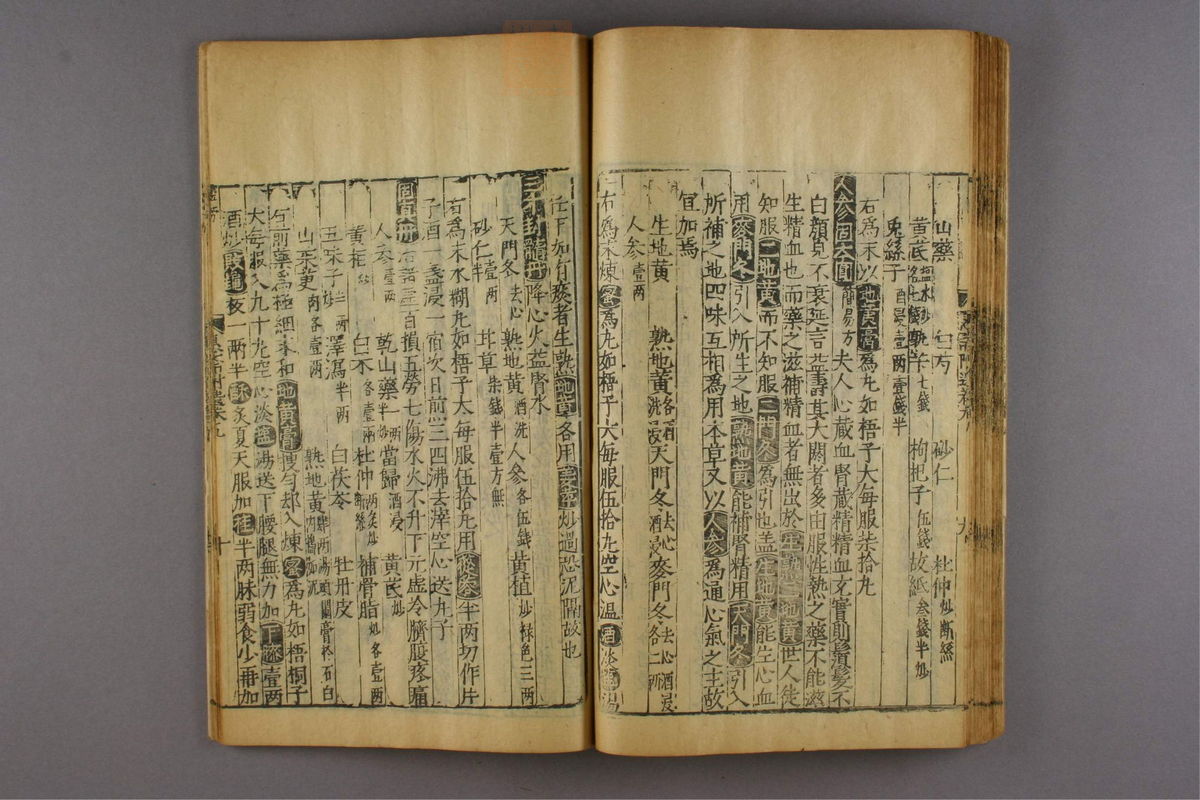 山藥 白芍 砂仁 杜仲炒斷絲
黄芪 七錢 枸杞子伍錢 故紙叁錢半炒
兎絲子酒浸壹兩壹錢半
右爲末以地黄膏爲丸如梧子大每服柒拾丸
人參固本圓 簡易方 夫人心藏血腎藏精精血充實則鬚髮不
白顔皃不衰延言益壽其夭闕者多由服性熱之藥不能滋
生精血也而藥之滋補精血者無出於生熟二地黄世人徒
知服二地黄而不知服二門冬爲引也盖生地黄能生心血
用麥門冬引入所生之地熟地黄能補腎精用天門冬引入
所補之地四味互相爲用本章又以人參爲通心氣之主故
宜加焉
生地黄 熟地黄各酒洗浸 天門冬酒浸去心 麥門冬去心酒浸各二兩
人參壹兩
右爲末煉蜜爲丸如梧子大每服伍拾丸空心温酒淡鹽湯
任下如有痰者生熟地黄各用薑汁炒過恐泥隔故也
三才封髓丹 降心火益腎水
天門冬去心 熟地黄酒洗 人參各伍錢 黄栢炒褐色三兩
砂仁壹兩半 甘草柒錢半壹方無
右爲末水糊丸如梧子大每服伍拾丸用蓯蓉半兩切作片
子酒一盞浸一宿次日煎三四沸去滓空心送丸子
固真丹 治諸虚百損五勞七傷水火不升下元虚冷臍腹疼痛
人參壹兩 乾山藥一兩半炒 當歸酒浸 黄芪炒
黄栢炒 白朮各壹兩 杜仲 補骨脂炒各壹兩
五味子炒一兩 澤瀉半兩 白茯苓 牡丹皮
山茱萸肉各壹兩 熟地黄
右前藥爲極細末和地黄膏搜勻却入煉蜜爲丸如梧桐子
大每服八九十丸空心淡鹽湯送下腰腿無力加牛膝壹兩
酒炒敗龜板一兩半酥炙夏天服加桂半兩脉弱食少再加
十